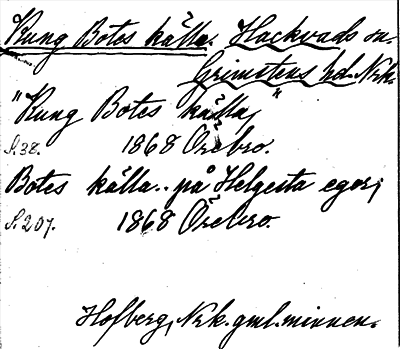 Kung Botes källa. Hackvads sn.
Grimstens hd. Nrk.
"Kung Botes källa,"
S. 38. 1868 Örebro.
Botes källa.. på Helgesta egor;
S. 207. 1868 Örebro.
Hofberg, Nrk. gml. minnen.